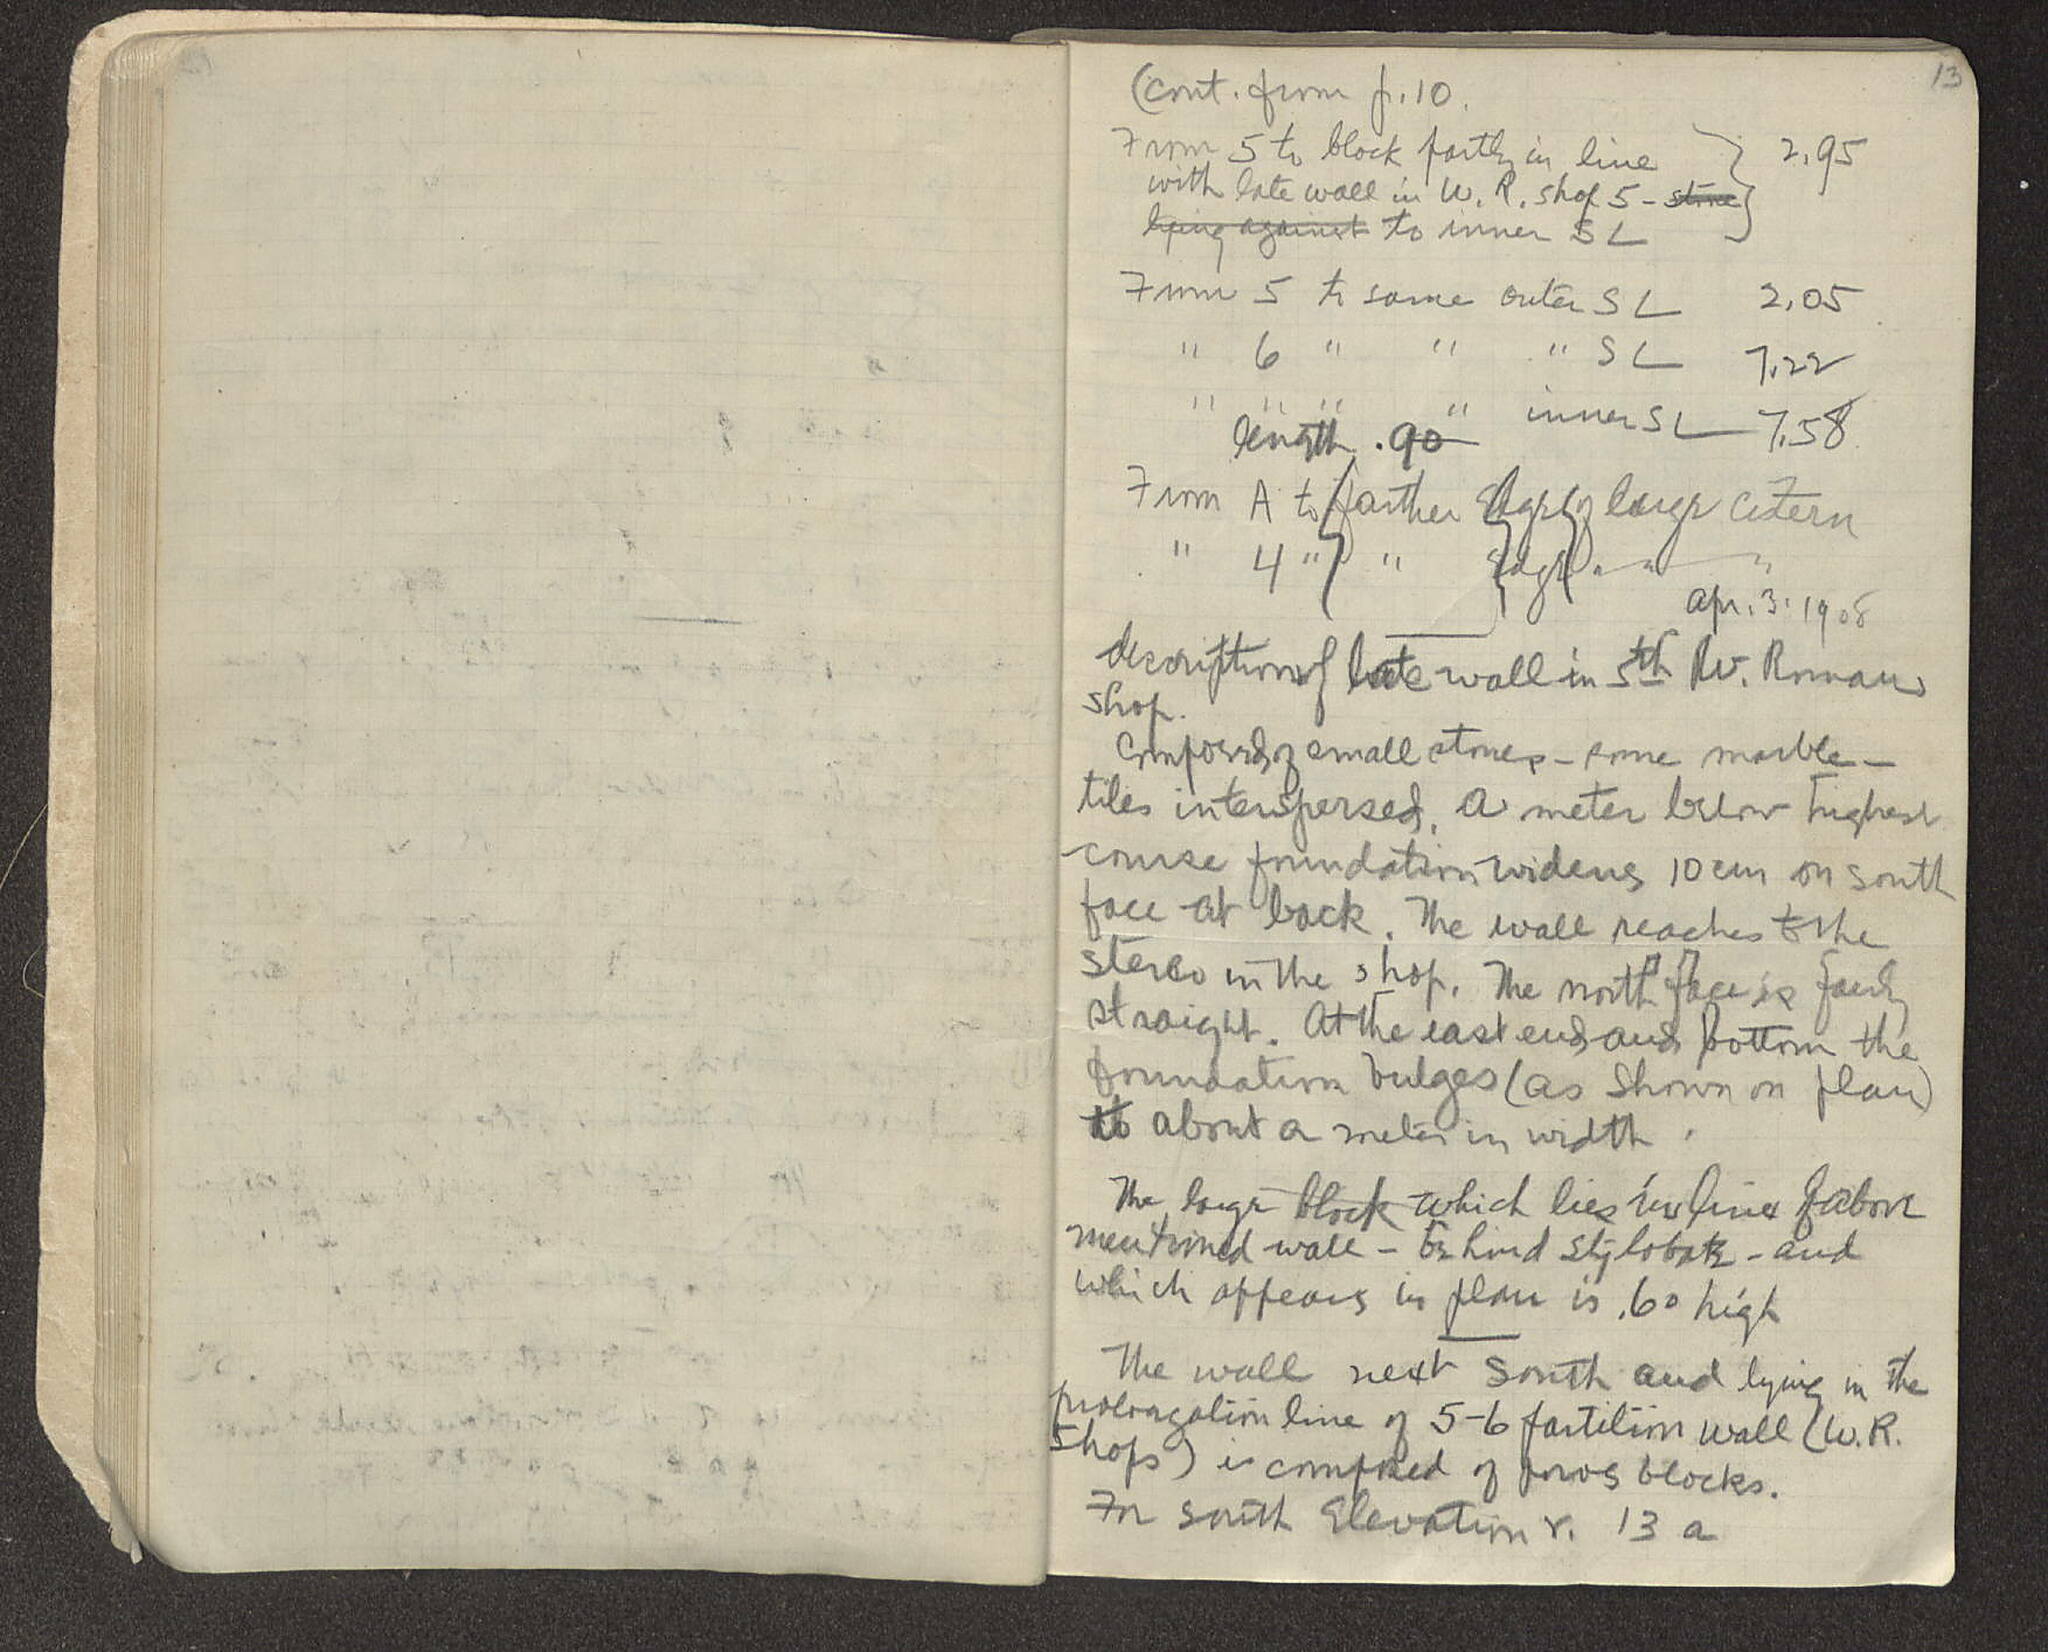 13
(Cont. from p. 10.
From 5 to block partly in line } 2.95
with late wall in W. R. shop 5 - stone
lying against to inner S L
From 5 to same outer S L 2.05
" 6 " " " S L 7.22
" " " " inner S L 7.58
length .90
From A to farther edge of large cistern
" 4 " " edge " " "
Apr. 3. 1908
description of late wall in 5th W. Roman
shop.
Composed of small stones - some marble -
tiles interspersed. A meter below highest
course foundation widens 10 cm on south
face at back. The wall reaches to the
stereo in the shop. The north face is fairly
straight. At the east end and bottom the
foundation bulges (as shown on plan)
to about a meter in width.
The large block which lies in line of above
mentioned wall - behind stylobate - and
which appears in plan is .60 high
The wall next south and lying in the
prolongation line of 5-6 partition wall (W. R.
shops) is composed of poros blocks.
For south elevation v. 13 a